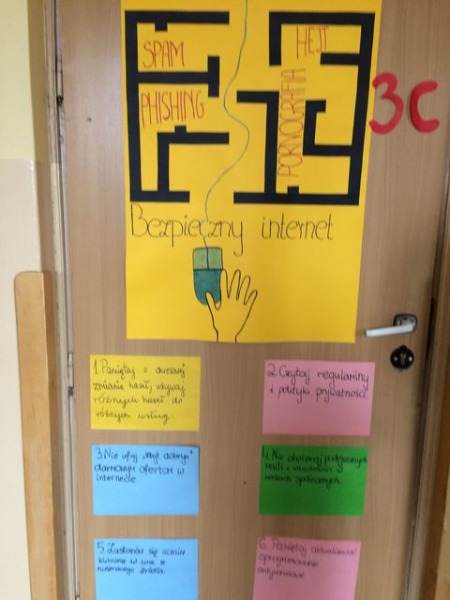 SPAM
HEJT
PHISHING
PORNOGRAFIA
3C
Bezpieczny internet
1. Pamiętaj o
zmianie haseł, używaj
różnych haseł do
różnych usług.
2. Czytaj regulaminy
i polityki prywatności
3. Nie ufaj „zbyt dobrym”
darmowym ofertom w
internecie
4. Nie otwieraj podejrzanych
w
społecznych
5. Zastanów się zanim
w
6. Pamiętaj
oprogramowanie
antywirusowe